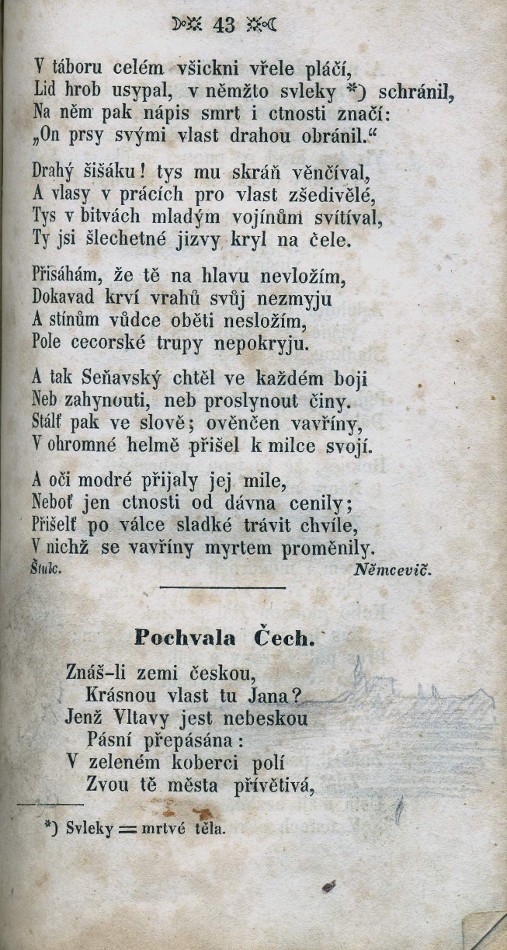 43
V táboru celém všickni vřele pláčí,
Lid hrob usypal, v němžto svleky *) schránil,
Na něm pak nápis smrt i ctnosti značí:
„On prsy svými vlast drahou obránil.“
Drahý šišáku! tys mu skráň věnčíval,
A vlasy v prácích pro vlast zšedivělé,
Tys v bitvách mladým vojínům svítíval,
Ty jsi šlechetné jizvy kryl na čele.
Přisáhám, že tě na hlavu nevložím,
Dokavad krví vrahů svůj nezmyju
A stínům vůdce oběti nesložím,
Pole cecorské trupy nepokryju.
A tak Seňavský chtěl ve každém boji
Neb zahynouti, neb proslynout činy.
Stálť pak ve slově; ověnčen vavříny,
V ohromné helmě přišel k milce svojí.
A oči modré přijaly jej mile,
Neboť jen ctnosti od dávna cenily;
Přišelť po válce sladké trávit chvíle,
V nichž se vavříny myrtem proměnily.
Štulc. Němcevič.
Pochvala Čech.
Znáš-li zemi českou,
Krásnou vlast tu Jana?
Jenž Vltavy jest nebeskou
Pásní přepásána:
V zeleném koberci polí
Zvou tě města přívětivá,
*) Svleky = mrtvé těla.